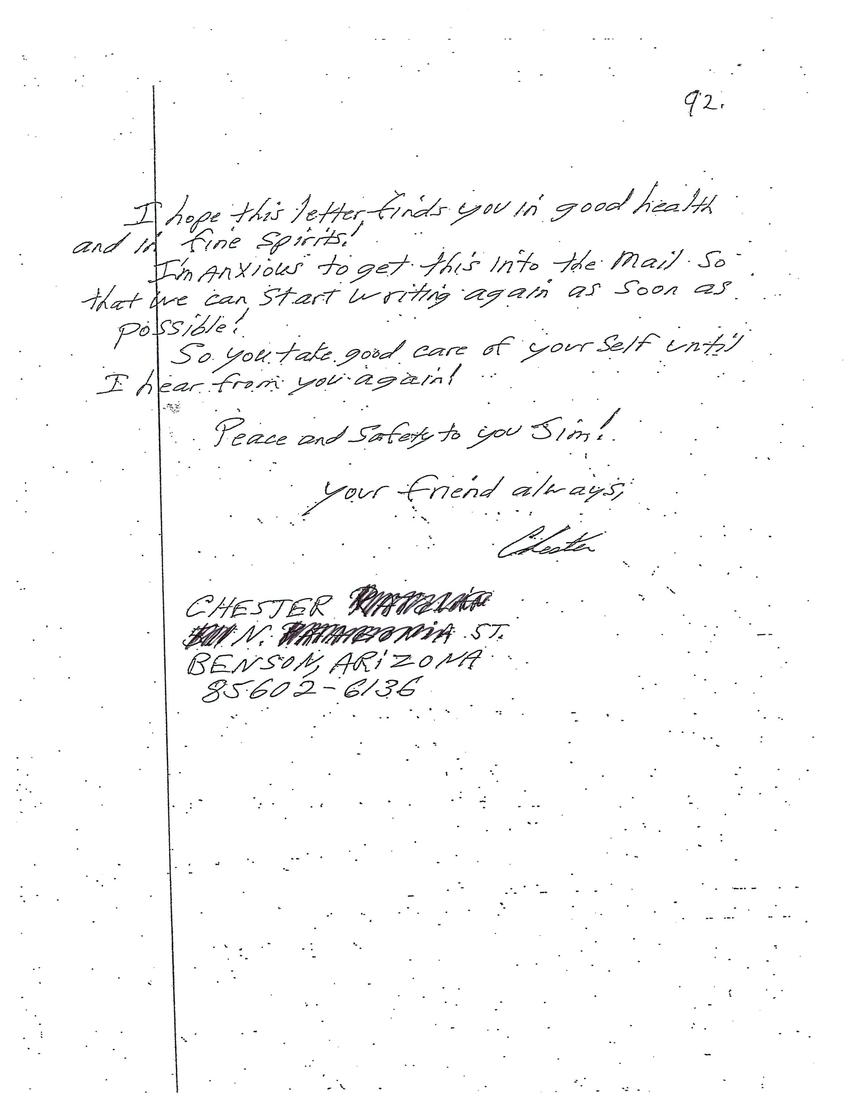 92.
I hope this letter finds you in good health
and in fine Spirits!
I'm Anxious to get this into the Mail So
that we can Start writing again as Soon as
possible!
So you take good care of your Self until
I hear from you again!
Peace and Safety to you Jim!
your friend always,
Chester
CHESTER
N. ST.
BENSON, ARIZONA
85602-6136